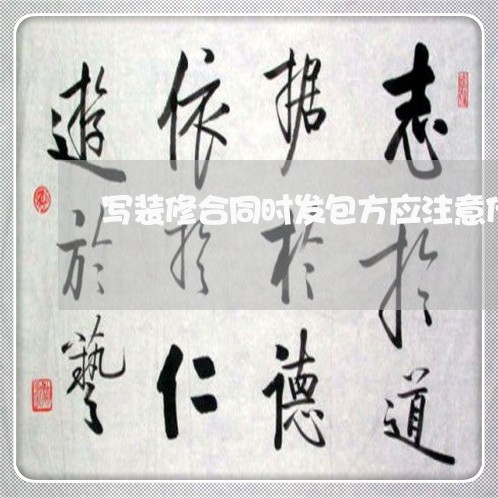 志於道
据於德
依於仁
遊於藝
写装修合同时发包方应注意